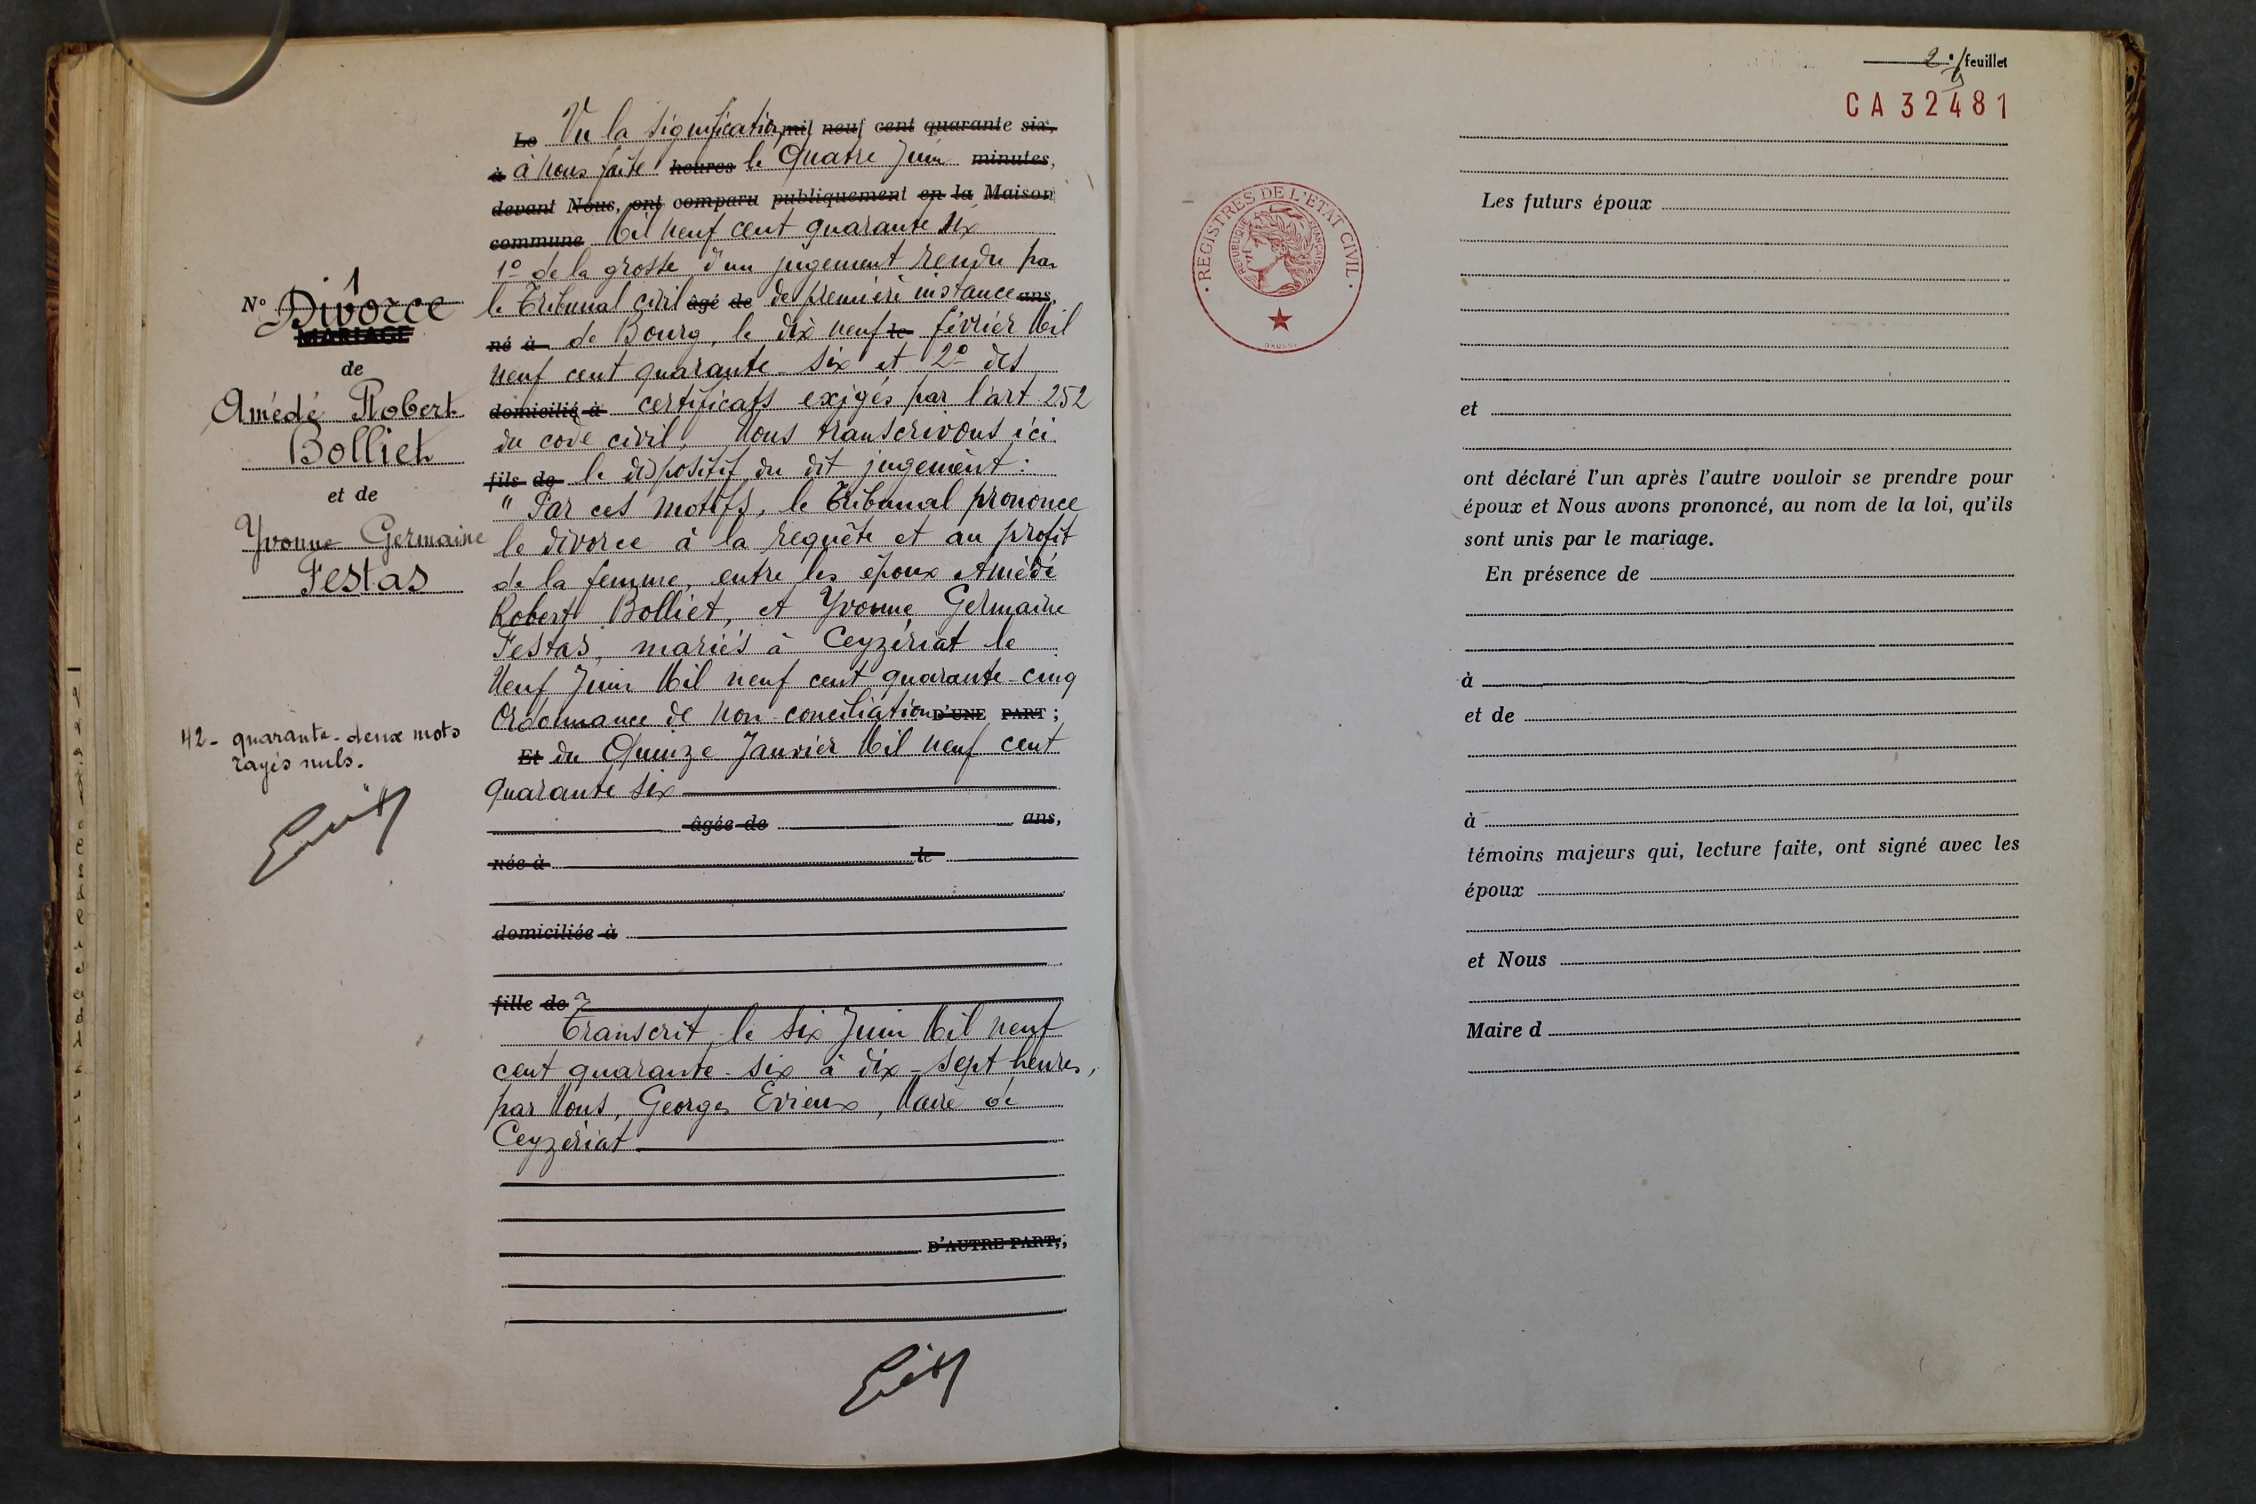 Le Vu la signification mil neuf cent quarante six,
à à Nous faite heures le Quatre Juin minutes,
devant Nous, ont comparu publiquement en la Maison
commune Mil neuf cent quarante six
1º de la grosse d'un jugement rendu par
le Tribunal civil âgé de de première instance ans,
né à de Bourg, le dix neuf le février Mil
neuf cent quarante-six et 2º des
domicilié à certificats exigés par l'art 252
du code civil, Nous transcrivons ici
fils de le dispositif du dit jugement:
" Par ces motifs, le Tribunal prononce
le divorce à la requête et au profit
de la femme, entre les époux Amédé
Robert Bolliet, et Yvonne Germaine
Festas, mariés à Ceyzériat le
Neuf Juin Mil neuf cent quarante-cinq
Ordonnance de non-conciliation D'UNE PART;
Et du Quinze Janvier Mil neuf cent
quarante six
âgée de ans,
née à le
domiciliée à
fille de
Transcrit le six Juin Mil neuf
cent quarante-six à dix-sept heures,
par Nous, Georges Evieux, Maire de
Ceyzériat
D'AUTRE PART,;
Nº 1
Divorce
MARIAGE
de
Amédé Robert
Bolliet
et de
Yvonne Germaine
Festas
42- quarante-deux mots
rayés nuls.
2e feuillet
CA 32481
REGISTRES DE L'ETAT CIVIL
REPUBLIQUE FRANÇAISE
Les futurs époux
et
ont déclaré l'un après l'autre vouloir se prendre pour
époux et Nous avons prononcé, au nom de la loi, qu'ils
sont unis par le mariage.
En présence de
à
et de
à
témoins majeurs qui, lecture faite, ont signé avec les
époux
et Nous
Maire d